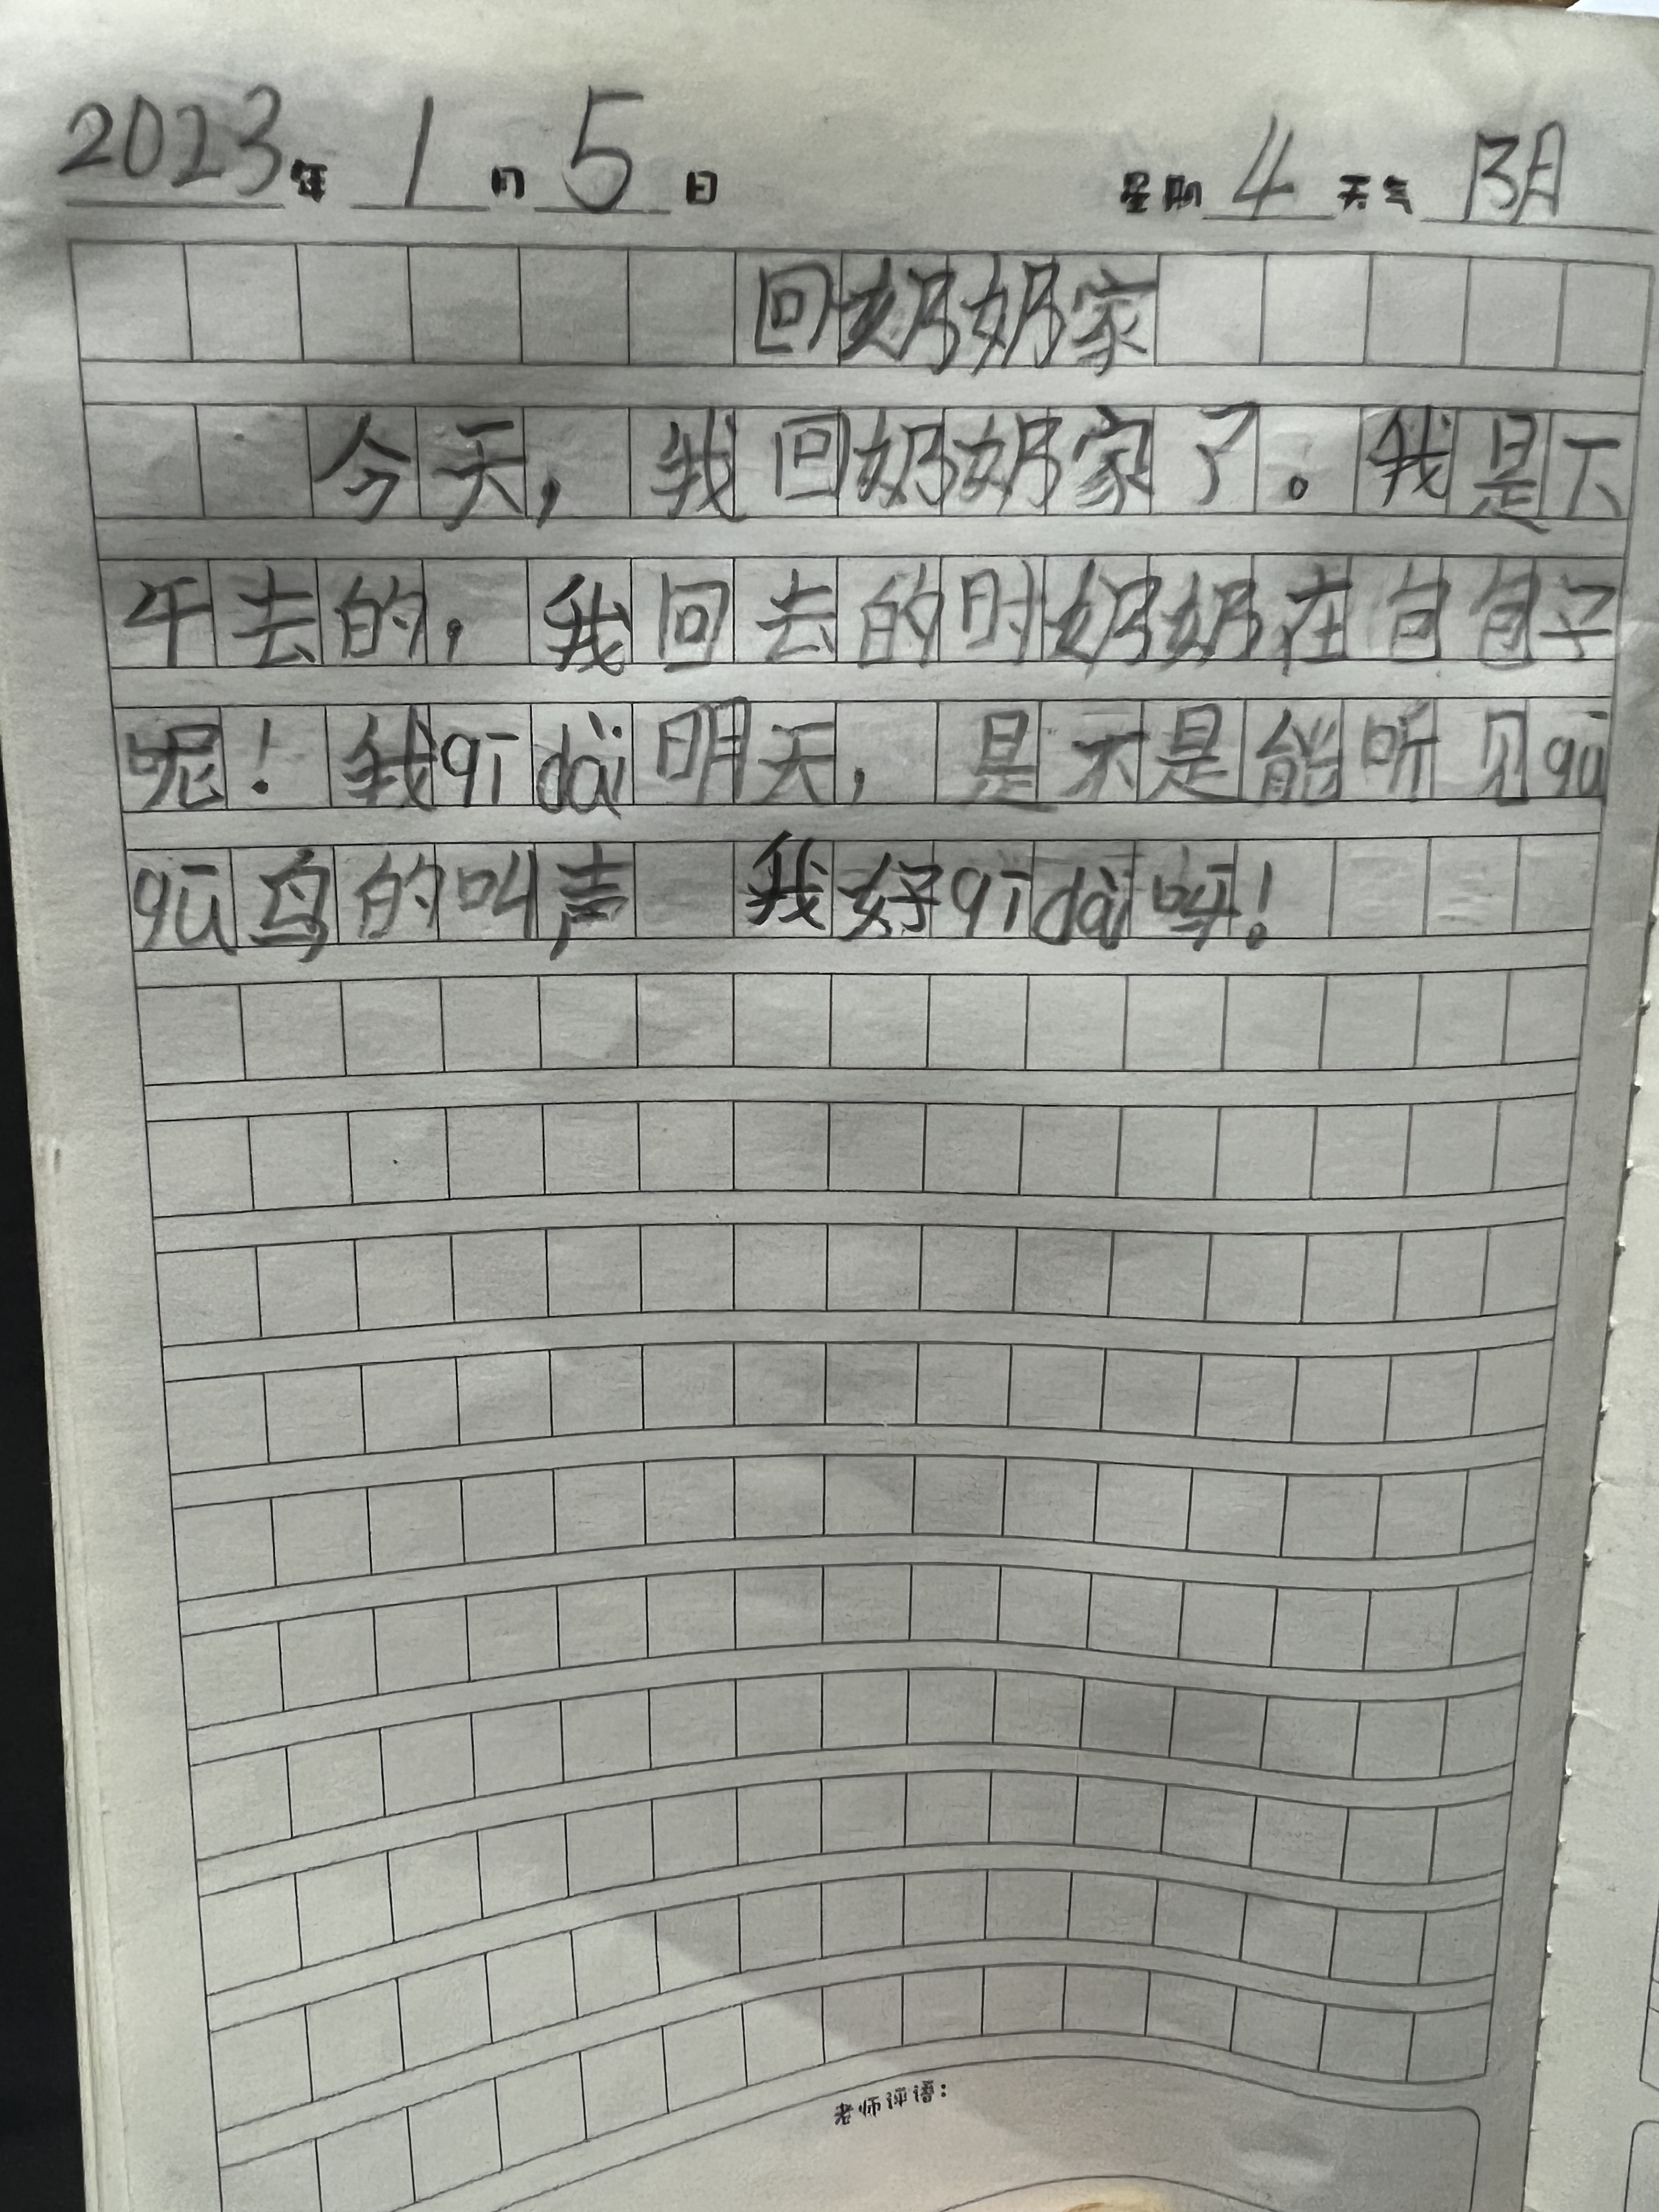 2023年 1月 5日 星期 4 天气 阴
回奶奶家
今天，我回奶奶家了。我是下
午去的，我回去的时奶奶在包包子
呢！我qī dài明天，是不是能听见gū
gū鸟的叫声 我好qī dài呀！
老师评语：